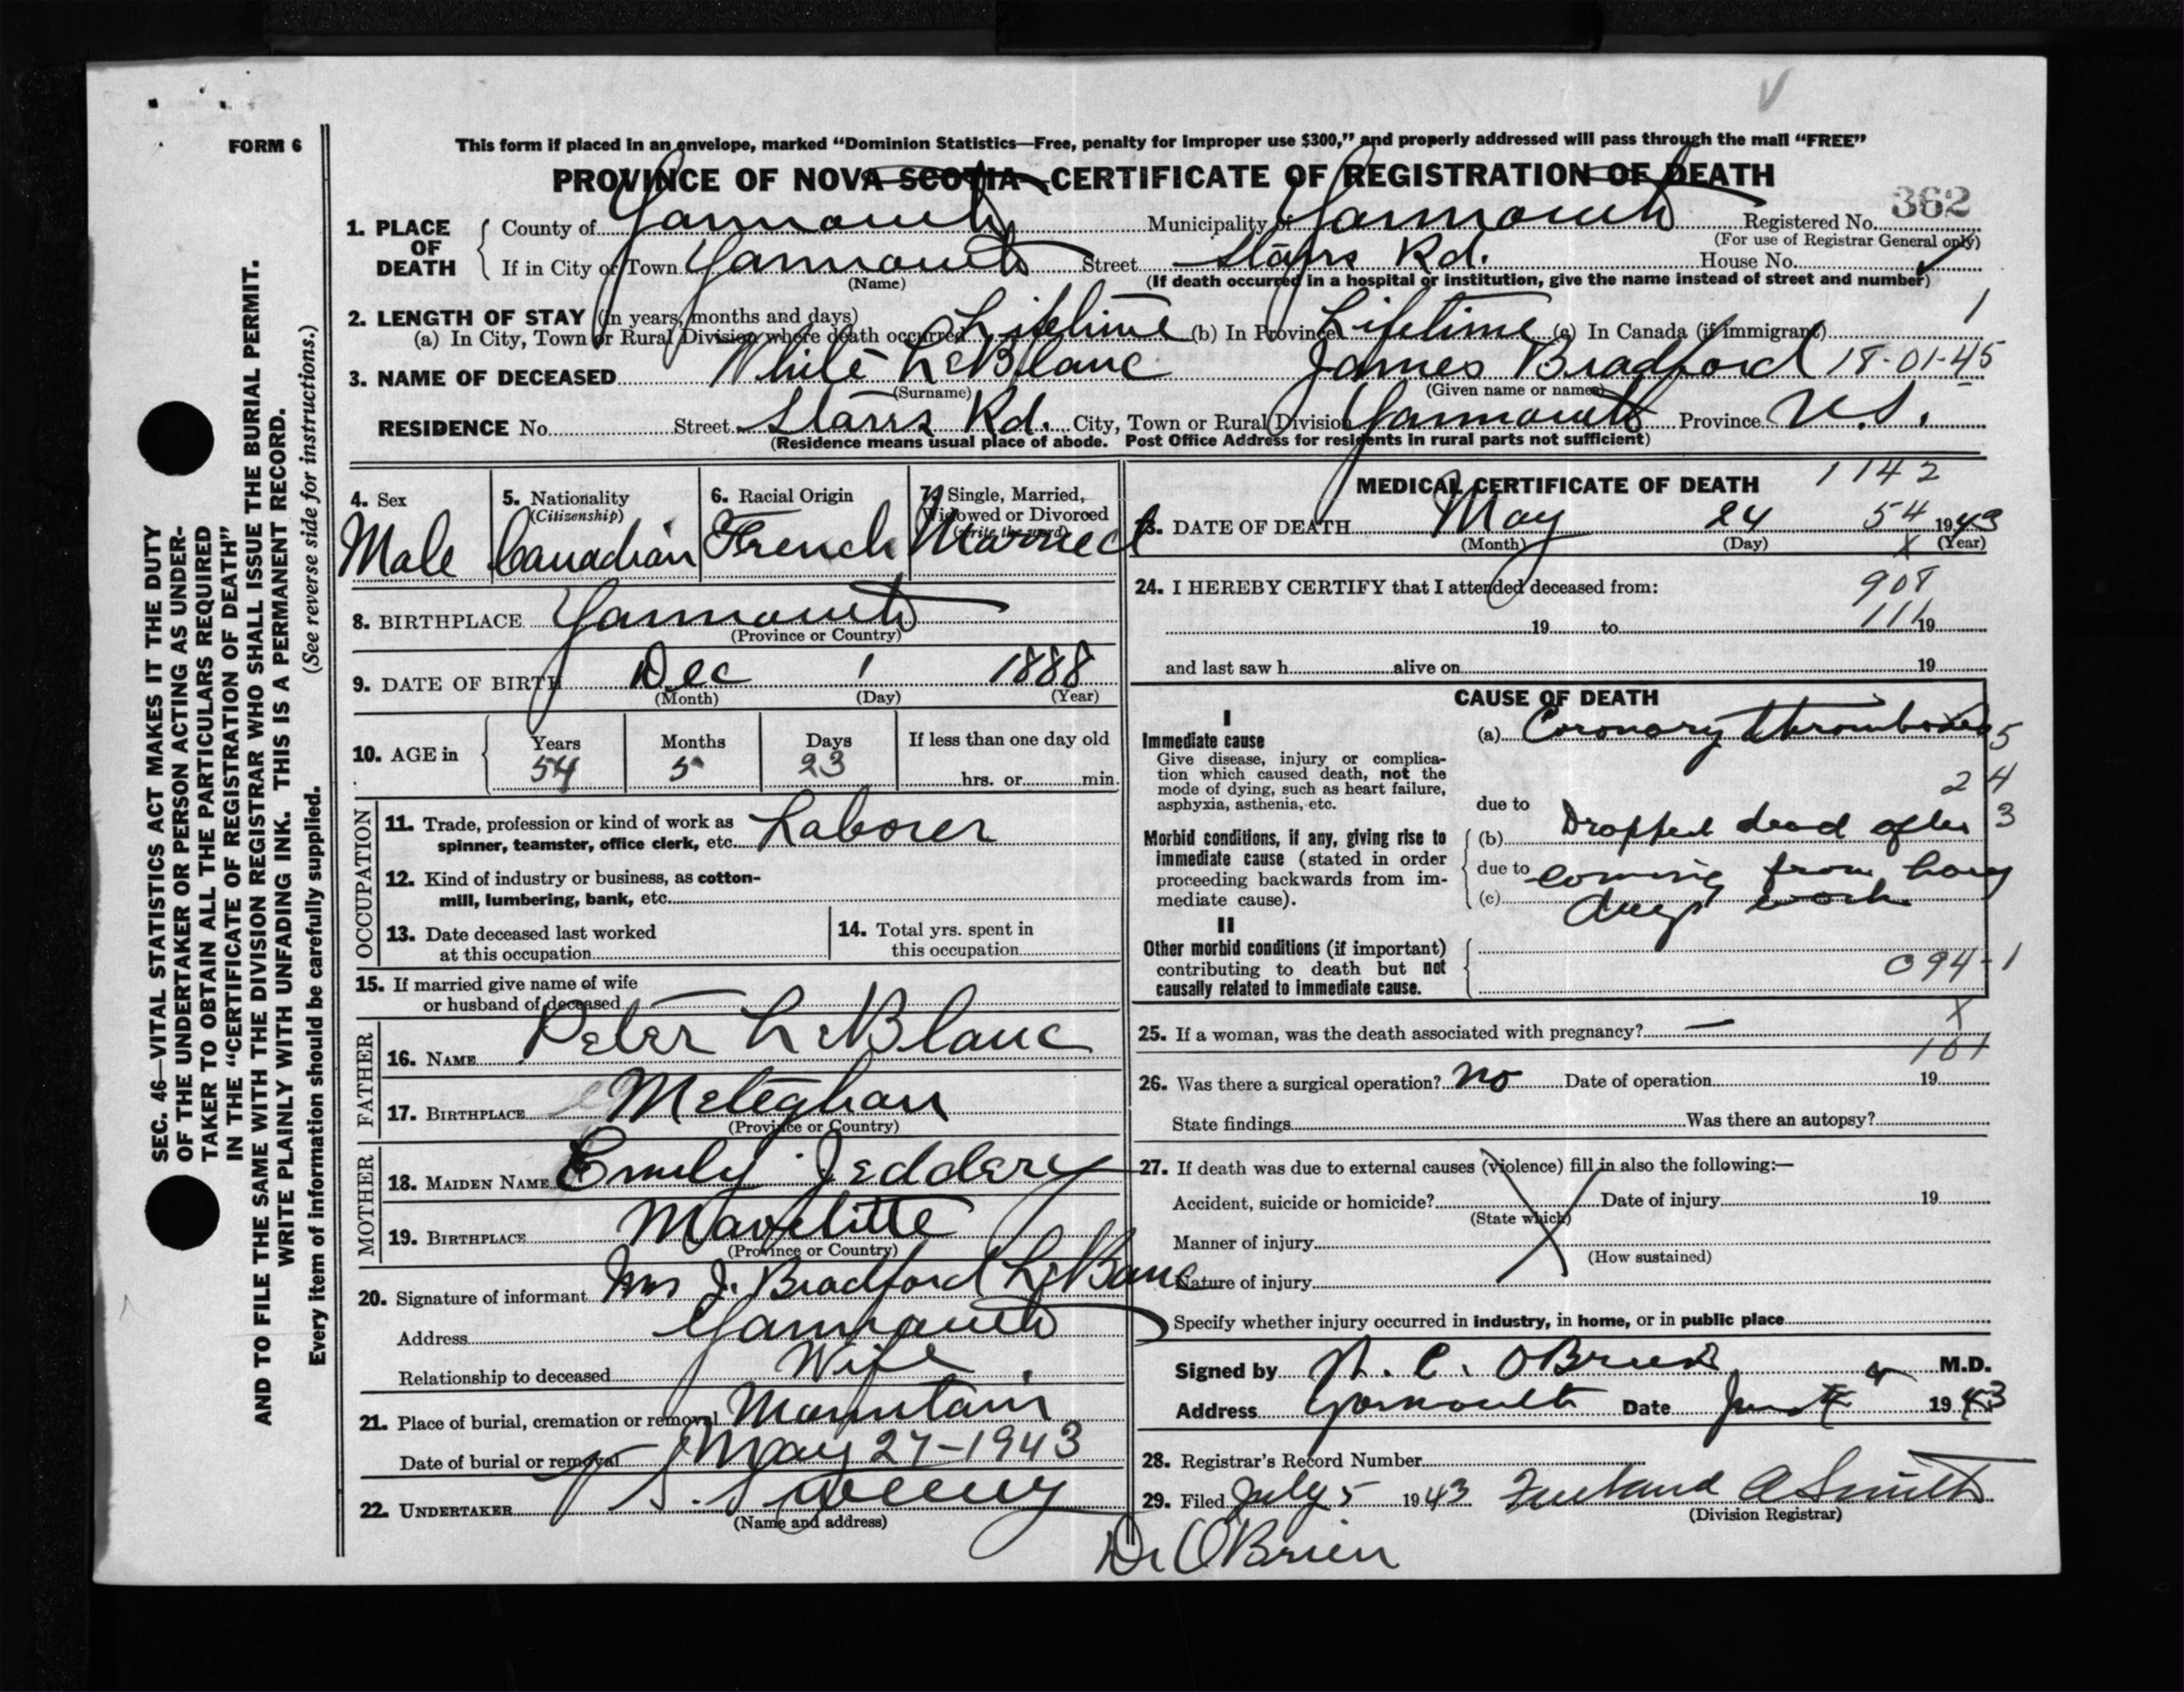 FORM 6
This form if placed in an envelope, marked "Dominion Statistics—Free, penalty for improper use $300," and properly addressed will pass through the mail "FREE"
PROVINCE OF NOVA SCOTIA CERTIFICATE OF REGISTRATION OF DEATH
362
1. PLACE OF DEATH County of Yarmouth Municipality of Yarmouth Registered No.
(For use of Registrar General only)
If in City or Town Yarmouth Street Starrs Rd. House No.
(Name) (If death occurred in a hospital or institution, give the name instead of street and number)
2. LENGTH OF STAY (in years, months and days)
(a) In City, Town or Rural Division where death occurred Lifetime (b) In Province Lifetime (c) In Canada (if immigrant) 1
3. NAME OF DECEASED White LeBlanc James Bradford 18-01-45
(Surname) (Given name or names)
RESIDENCE No. Street Starrs Rd. City, Town or Rural Division Yarmouth Province N.S.
(Residence means usual place of abode. Post Office Address for residents in rural parts not sufficient)
4. Sex Male
5. Nationality (Citizenship) Canadian
6. Racial Origin French
7. Single, Married, Widowed or Divorced (write the word) Married
8. BIRTHPLACE Yarmouth
(Province or Country)
9. DATE OF BIRTH Dec 1 1888
(Month) (Day) (Year)
10. AGE in Years 54 Months 5 Days 23 If less than one day old
hrs. or min.
OCCUPATION
11. Trade, profession or kind of work as spinner, teamster, office clerk, etc. Laborer
12. Kind of industry or business, as cotton-mill, lumbering, bank, etc.
13. Date deceased last worked at this occupation
14. Total yrs. spent in this occupation
15. If married give name of wife or husband of deceased
FATHER
16. NAME Peter LeBlanc
17. BIRTHPLACE Meteghan
(Province or Country)
MOTHER
18. MAIDEN NAME Emily Jeddery
19. BIRTHPLACE Mavelitte
(Province or Country)
20. Signature of informant Mrs J. Bradford LeBlanc
Address Yarmouth
Relationship to deceased Wife
21. Place of burial, cremation or removal Mountain
Date of burial or removal May 27-1943
22. UNDERTAKER V. S. Sweeny
(Name and address)
MEDICAL CERTIFICATE OF DEATH 1142
23. DATE OF DEATH May 24 54 1943
(Month) (Day) X (Year)
24. I HEREBY CERTIFY that I attended deceased from: 908
19 to 111 19
and last saw h alive on 19
CAUSE OF DEATH
I
Immediate cause
Give disease, injury or complication which caused death, not the mode of dying, such as heart failure, asphyxia, asthenia, etc.
(a) Coronary thrombosis 5
2 4
due to
Morbid conditions, if any, giving rise to immediate cause (stated in order proceeding backwards from immediate cause).
(b) Dropped dead after 3
due to coming from hard
(c) days work
II
Other morbid conditions (if important) contributing to death but not causally related to immediate cause.
094-1
X
25. If a woman, was the death associated with pregnancy? —
101
26. Was there a surgical operation? No Date of operation 19
State findings Was there an autopsy?
27. If death was due to external causes (violence) fill in also the following:—
Accident, suicide or homicide? Date of injury 19
(State which)
Manner of injury
(How sustained)
Nature of injury
Specify whether injury occurred in industry, in home, or in public place
Signed by O'Brien M.D.
Address Yarmouth Date June 4 1943
28. Registrar's Record Number
29. Filed July 5 1943 Smith
(Division Registrar)
Dr O'Brien
SEC. 46—VITAL STATISTICS ACT MAKES IT THE DUTY
OF THE UNDERTAKER OR PERSON ACTING AS UNDER-
TAKER TO OBTAIN ALL THE PARTICULARS REQUIRED
IN THE "CERTIFICATE OF REGISTRATION OF DEATH"
AND TO FILE THE SAME WITH THE DIVISION REGISTRAR WHO SHALL ISSUE THE BURIAL PERMIT.
WRITE PLAINLY WITH UNFADING INK. THIS IS A PERMANENT RECORD.
Every item of information should be carefully supplied. (See reverse side for instructions.)